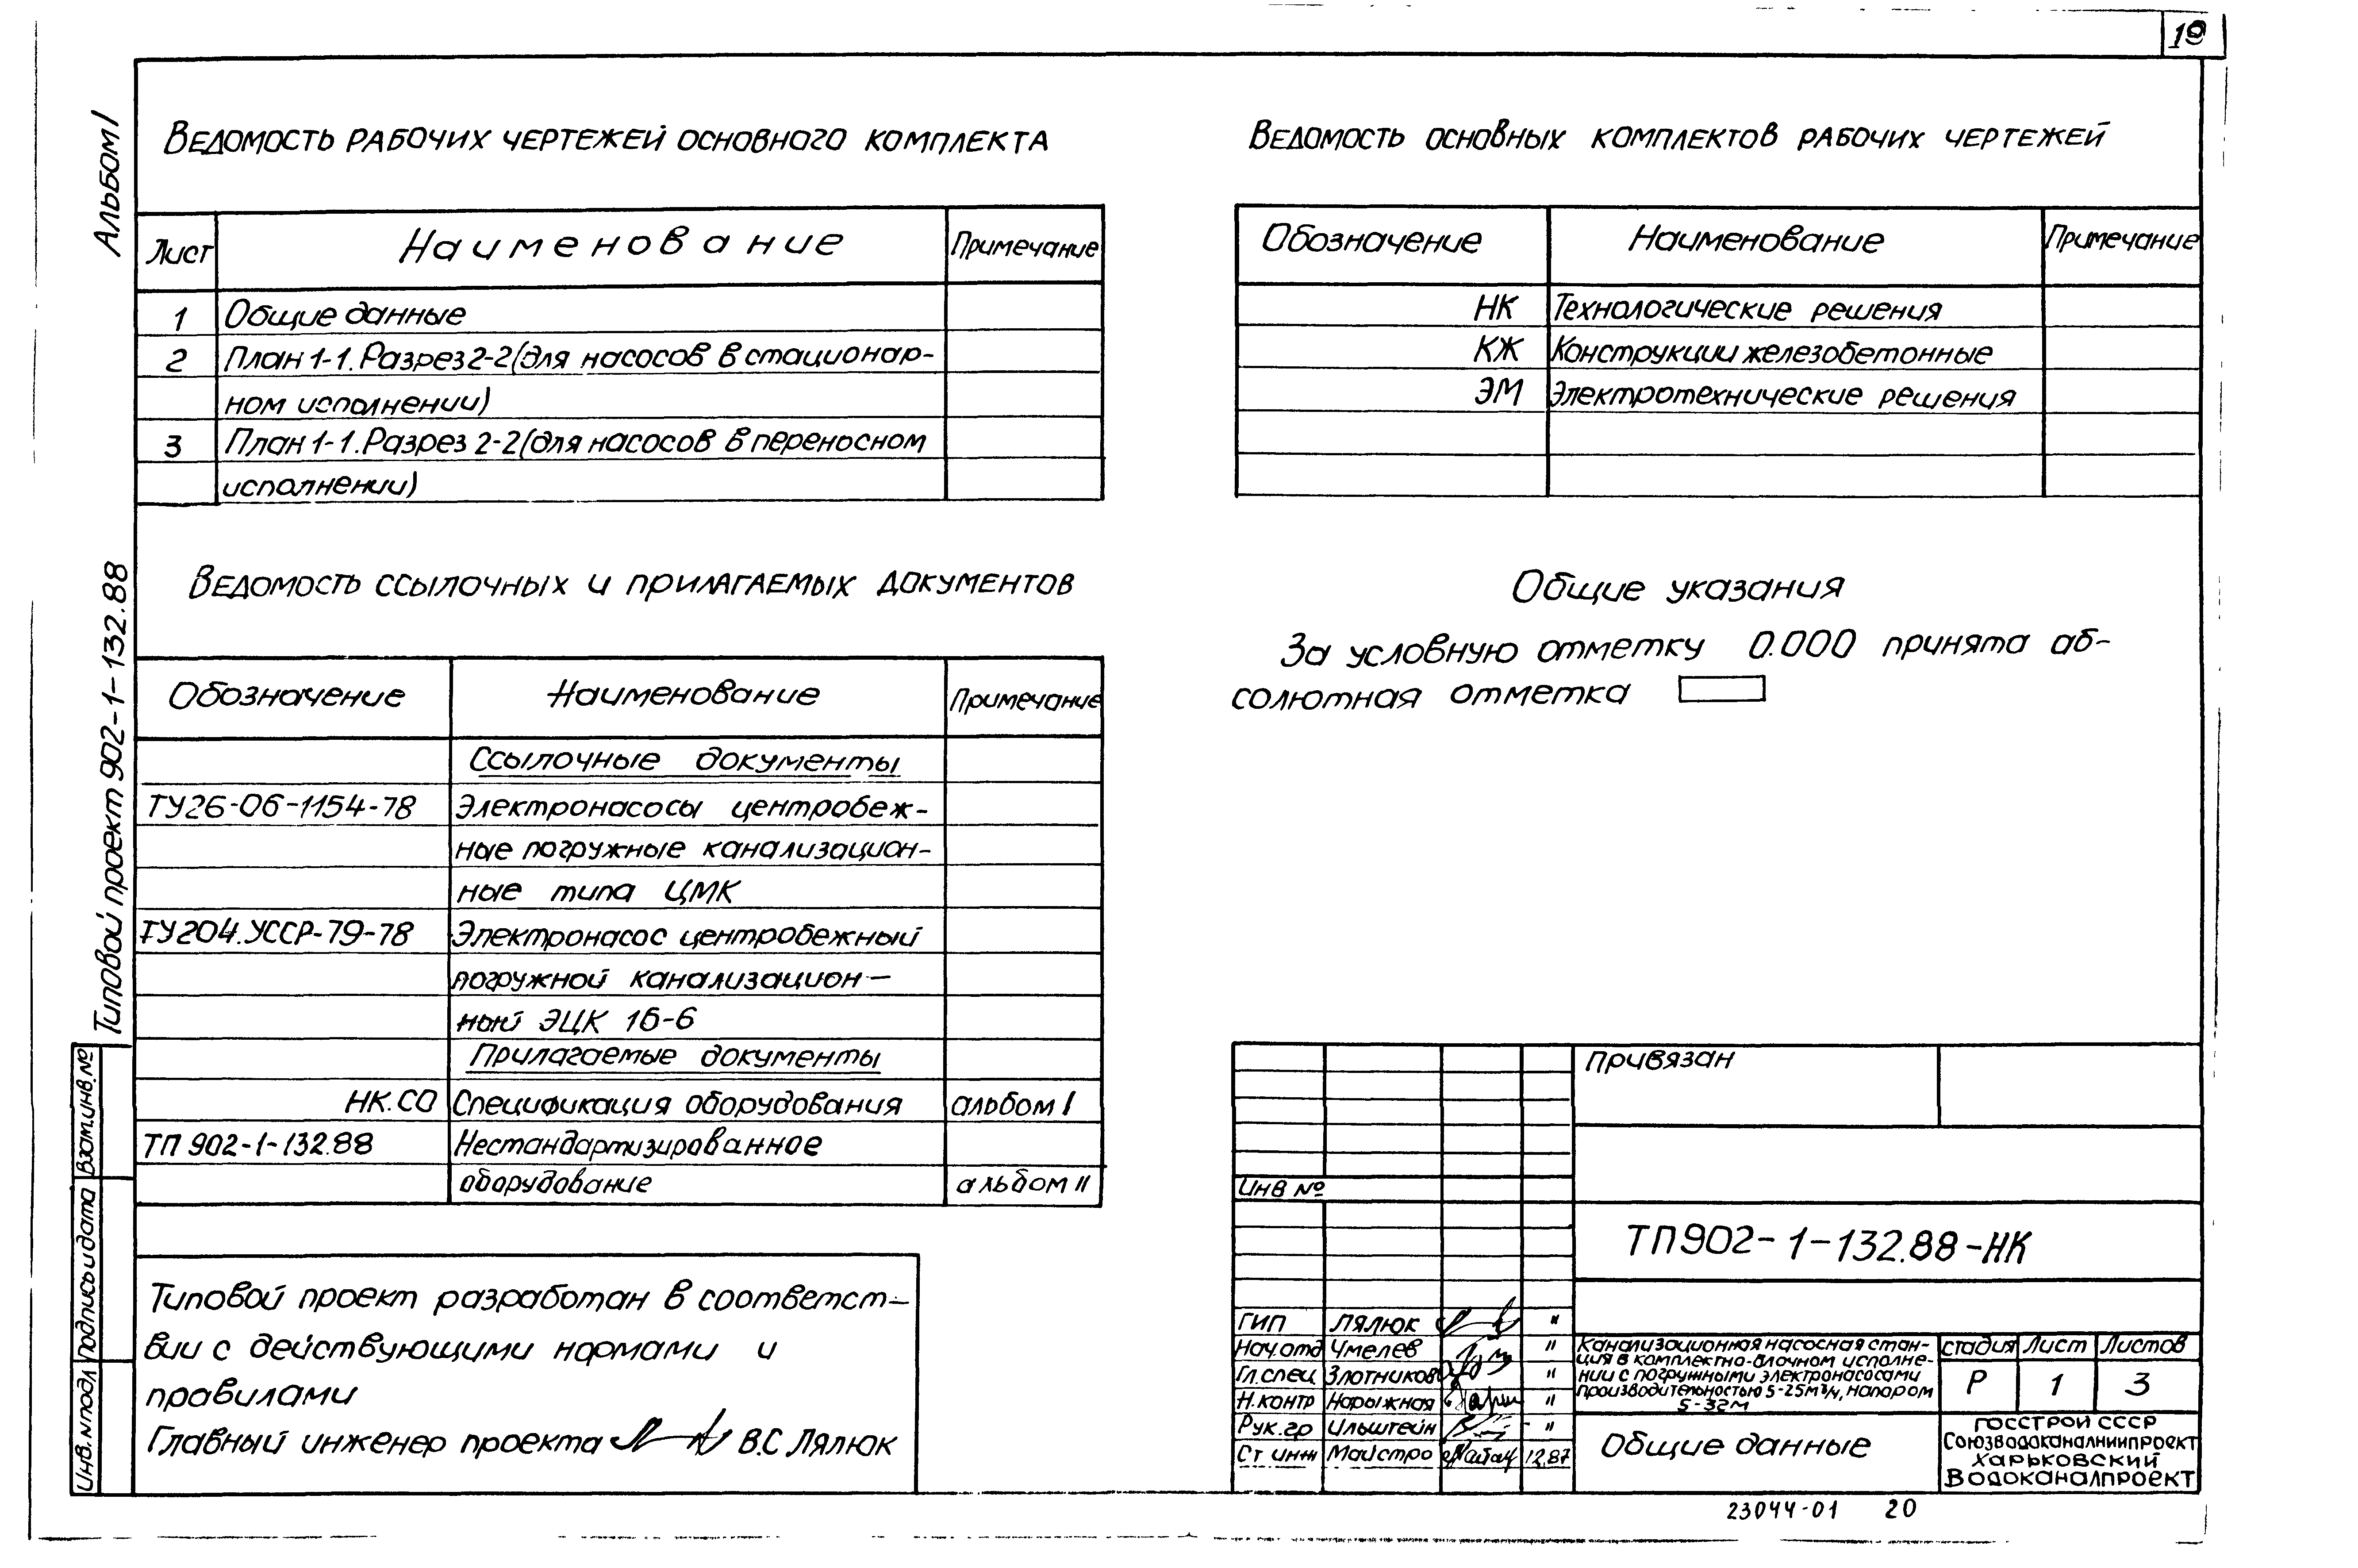 19
Альбом I
Типовой проект 902-1-132.88
Взам.инв.№
Подпись и дата
Инв.№подл
Ведомость рабочих чертежей основного комплекта
Лист Наименование Примечание
1 Общие данные
2 План 1-1. Разрез 2-2 (для насосов в стационар-
ном исполнении)
3 План 1-1. Разрез 2-2 (для насосов в переносном
исполнении)
Ведомость ссылочных и прилагаемых документов
Обозначение Наименование Примечание
Ссылочные документы
ТУ26-06-1154-78 Электронасосы центробеж-
ные погружные канализацион-
ные типа ЦМК
ТУ204.УССР-79-78 Электронасос центробежный
погружной канализацион-
ный ЭЦК 16-6
Прилагаемые документы
НК.СО Спецификация оборудования альбом I
ТП 902-1-132.88 Нестандартизированное
оборудование альбом II
Типовой проект разработан в соответст-
вии с действующими нормами и
правилами
Главный инженер проекта В.С Лялюк
Ведомость основных комплектов рабочих чертежей
Обозначение Наименование Примечание
НК Технологические решения
КЖ Конструкции железобетонные
ЭМ Электротехнические решения
Общие указания
За условную отметку 0.000 принята аб-
солютная отметка
Привязан
Инв №
ТП902-1-132.88-НК
ГИП Лялюк "
Нач.отд Чмелев "
Гл.спец Злотников "
Н.контр Нарыжная "
Рук.гр Ильштейн "
Ст инж Майстро 12.87
Канализационная насосная стан-
ция в комплектно-блочном исполне-
нии с погружными электронасосами
производительностью 5-25м³/ч, напором
5-32м
стадия Лист Листов
Р 1 3
Общие данные
Госстрой СССР
Союзводоканалниипроект
Харьковский
Водоканалпроект
23044-01 20